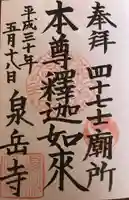 奉拝 四十七士廟所
本尊釋迦如來
平成三十年
五月十八日
泉岳寺